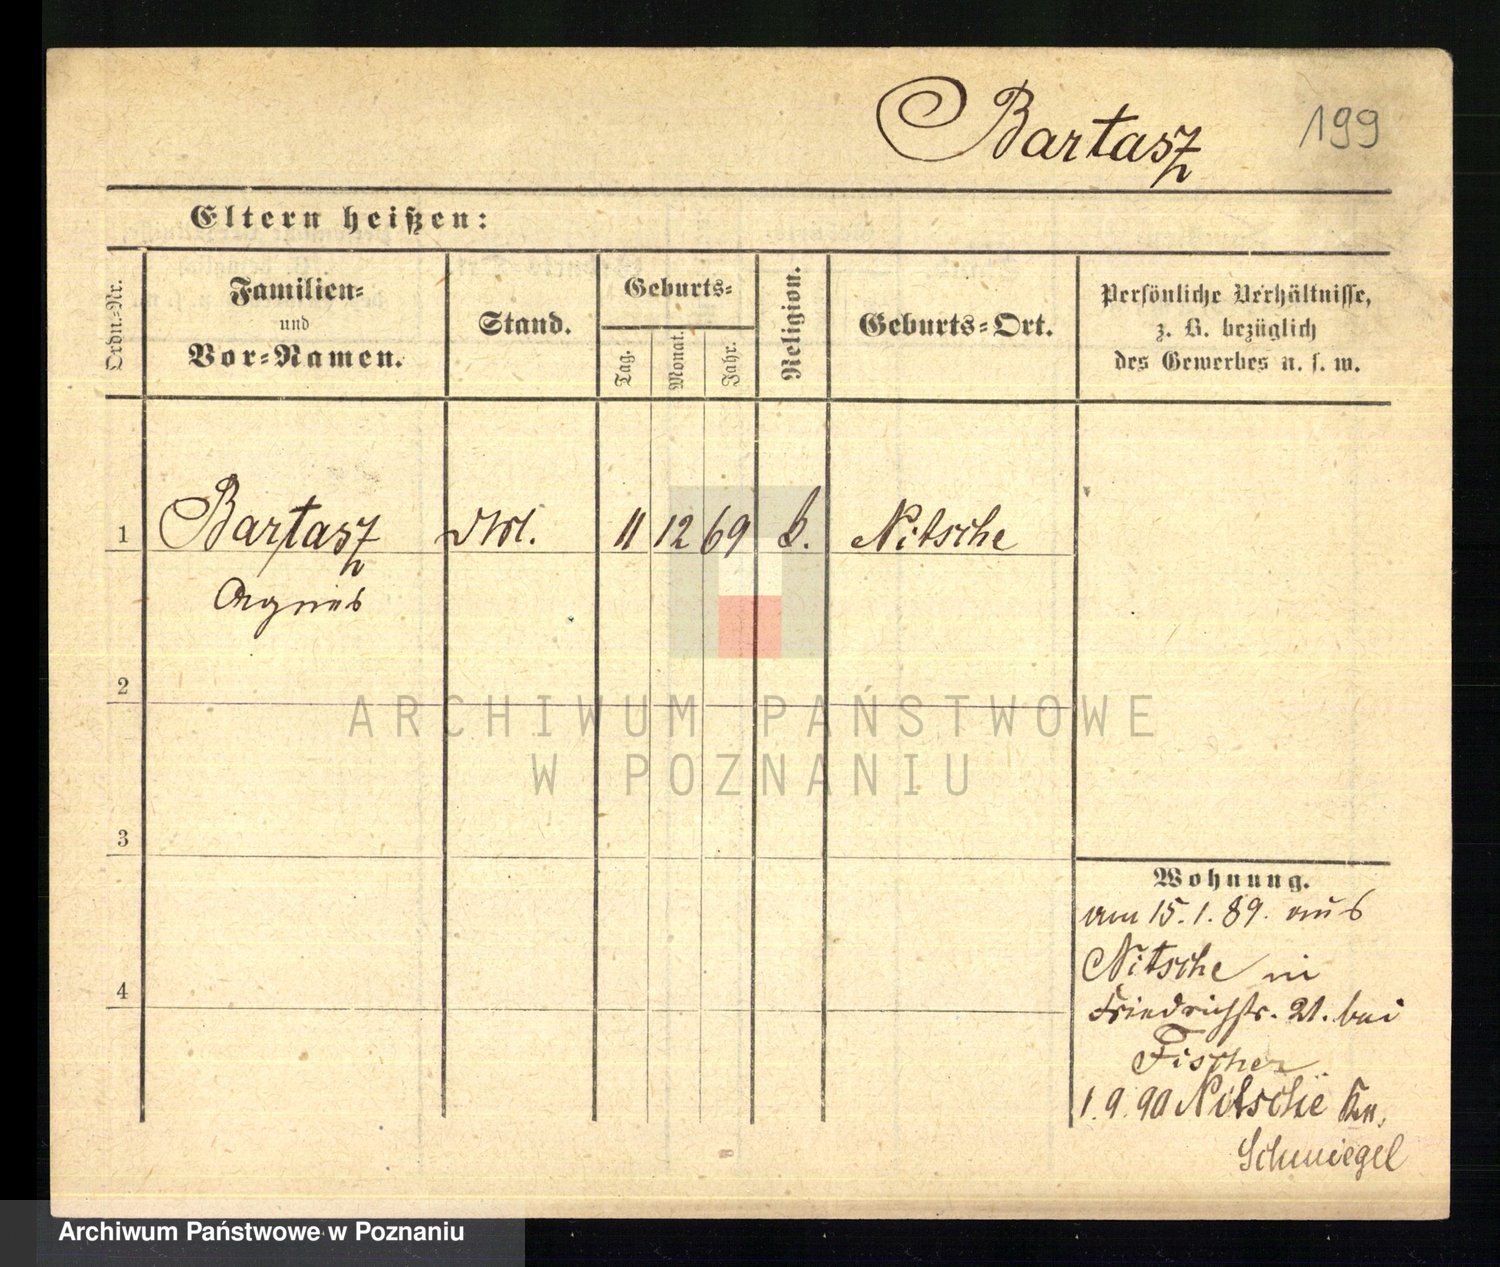 Bartasz
199
Eltern heißen:
Ordn.-Nr.
Familien-
und
Vor-Namen.
Stand.
Geburts-
Tag.
Monat.
Jahr.
Religion.
Geburts-Ort.
Persönliche Verhältnisse,
z. B. bezüglich
des Gewerbes u. s. w.
1 Bartasz 11 12 69 k. Nitsche
Agnes
2
3
4
Wohnung.
am 15.1.89. aus
Nitsche in
Friedrichstr. 21. bei
Fischer
1.9.90 Nitsche
Schmiegel
ARCHIWUM PAŃSTWOWE
W POZNANIU
Archiwum Państwowe w Poznaniu